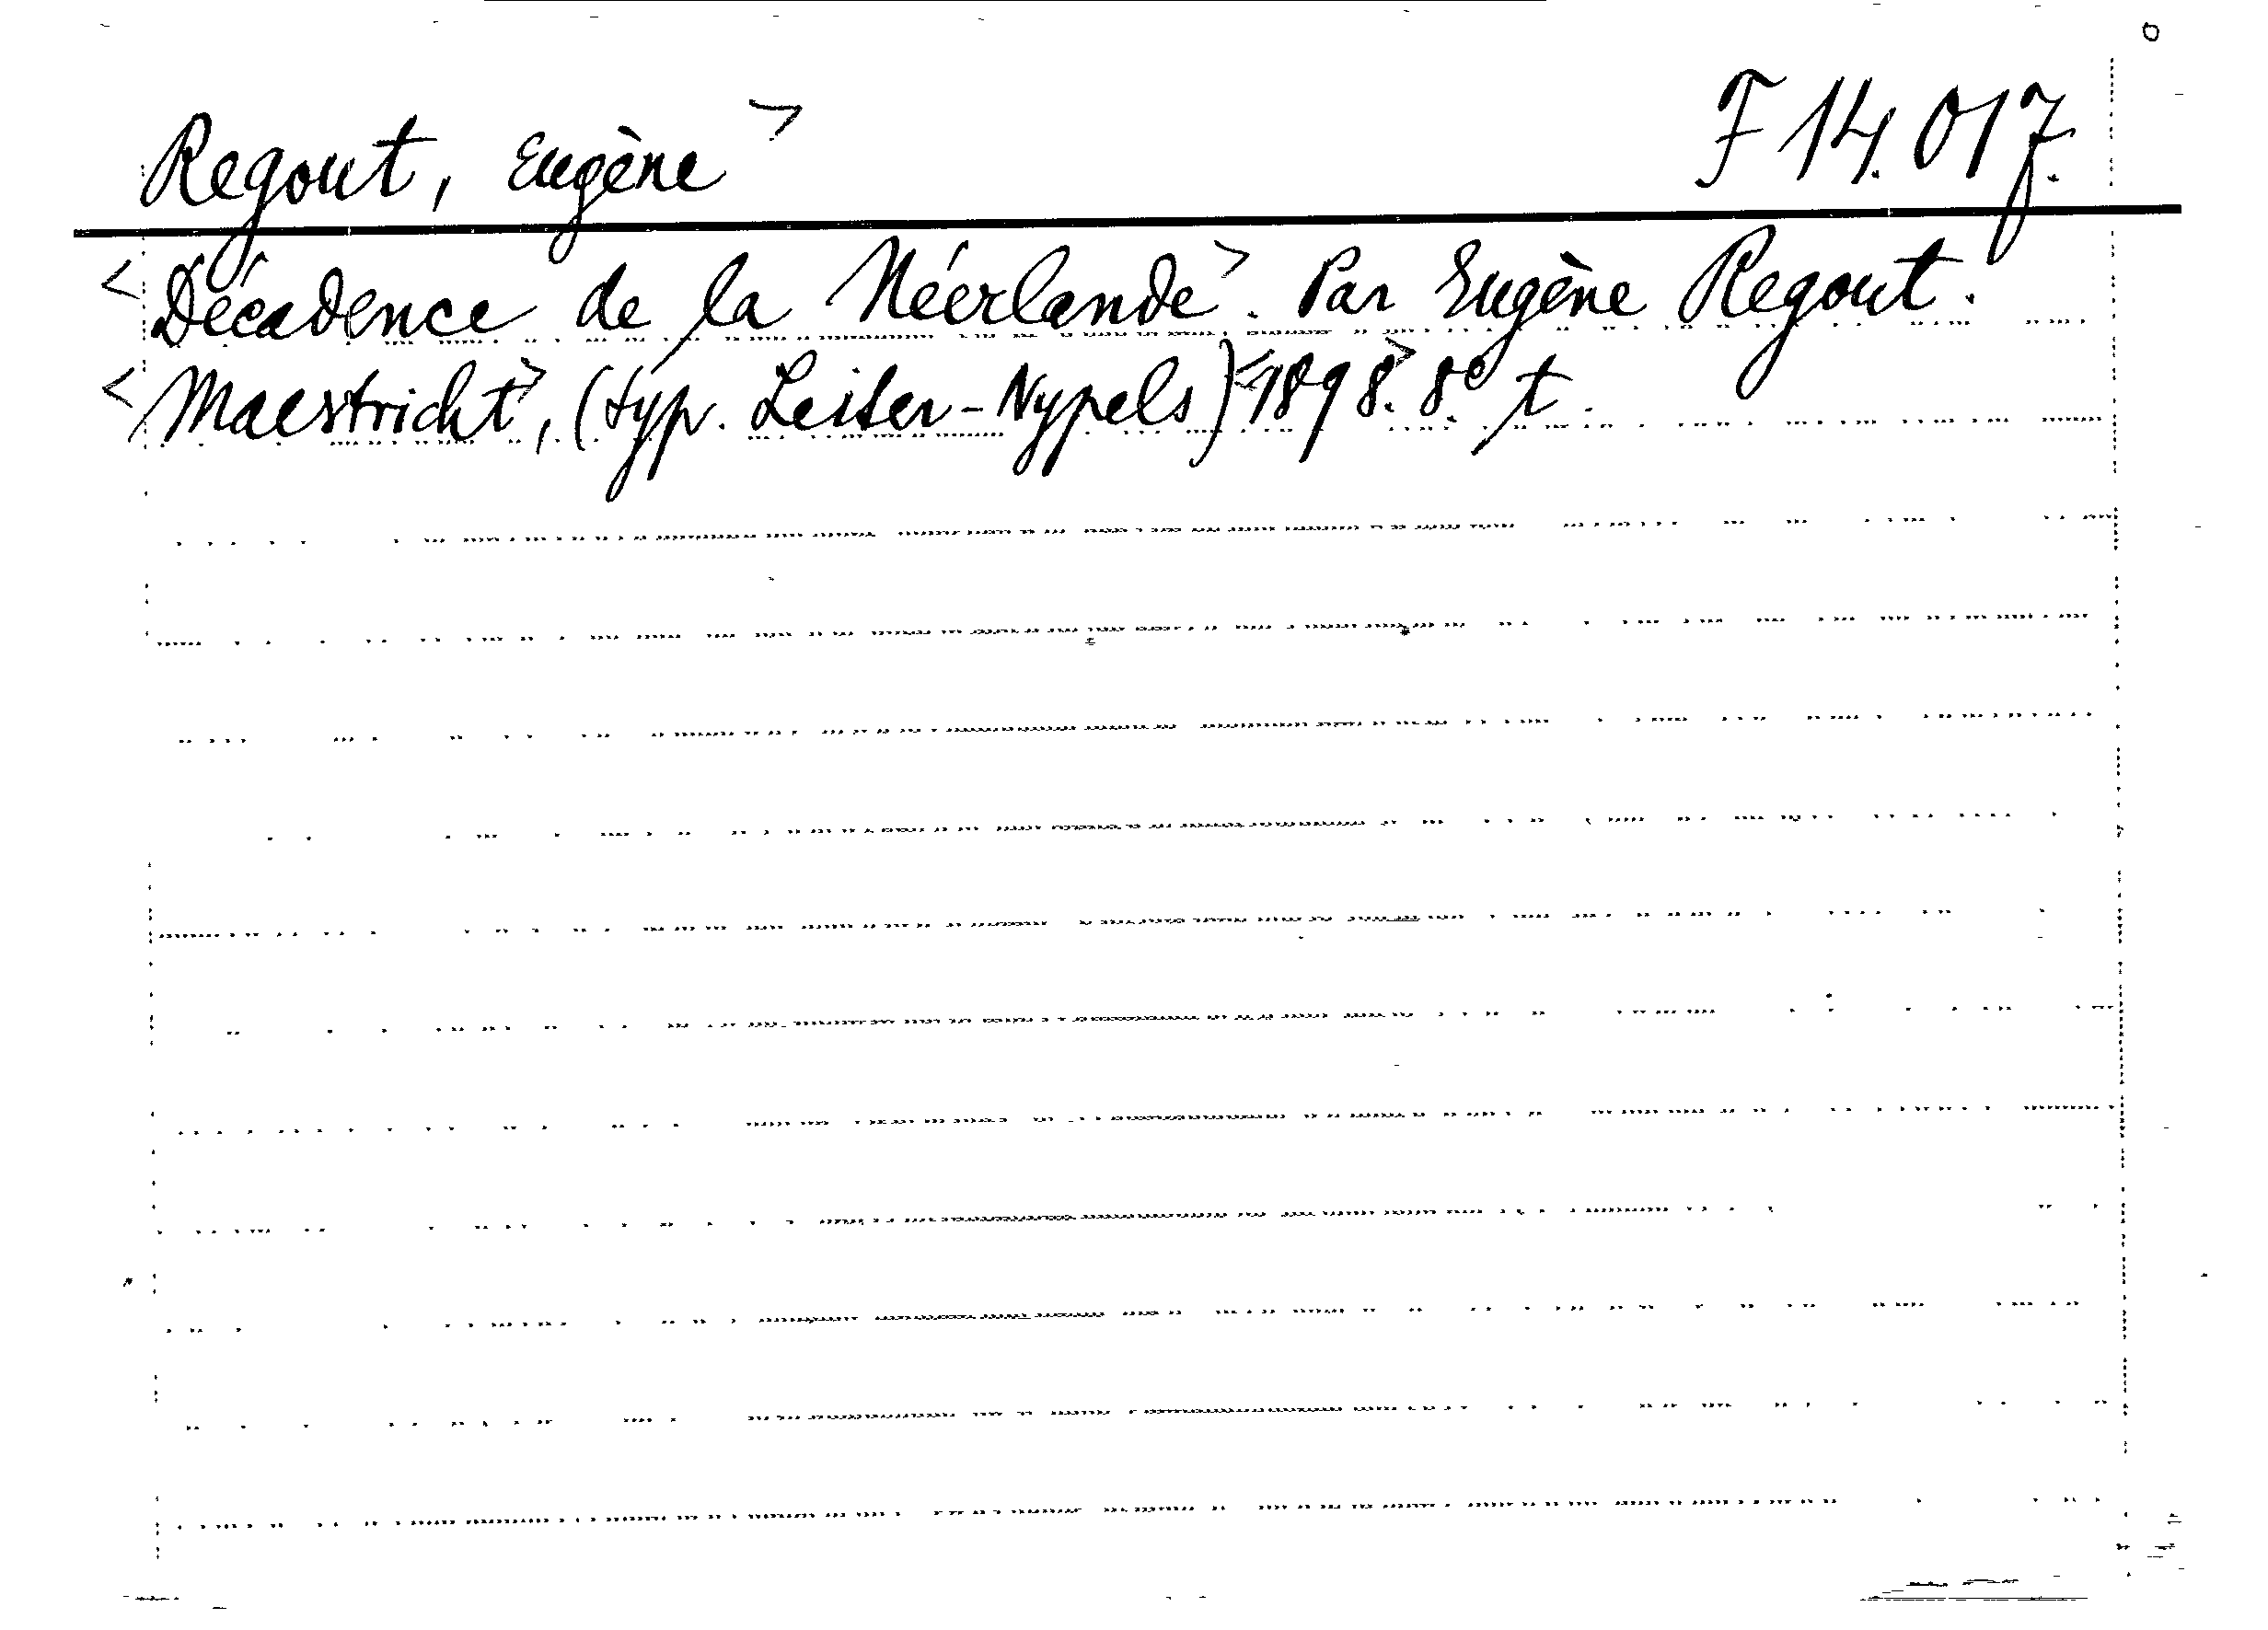 Regout, Eugène > F 14.017.
<Décadence de la Néerlande>. Par Eugène Regout.
<Maestricht>, (typ. Leiter-Nypels) <1898>. 8° t.